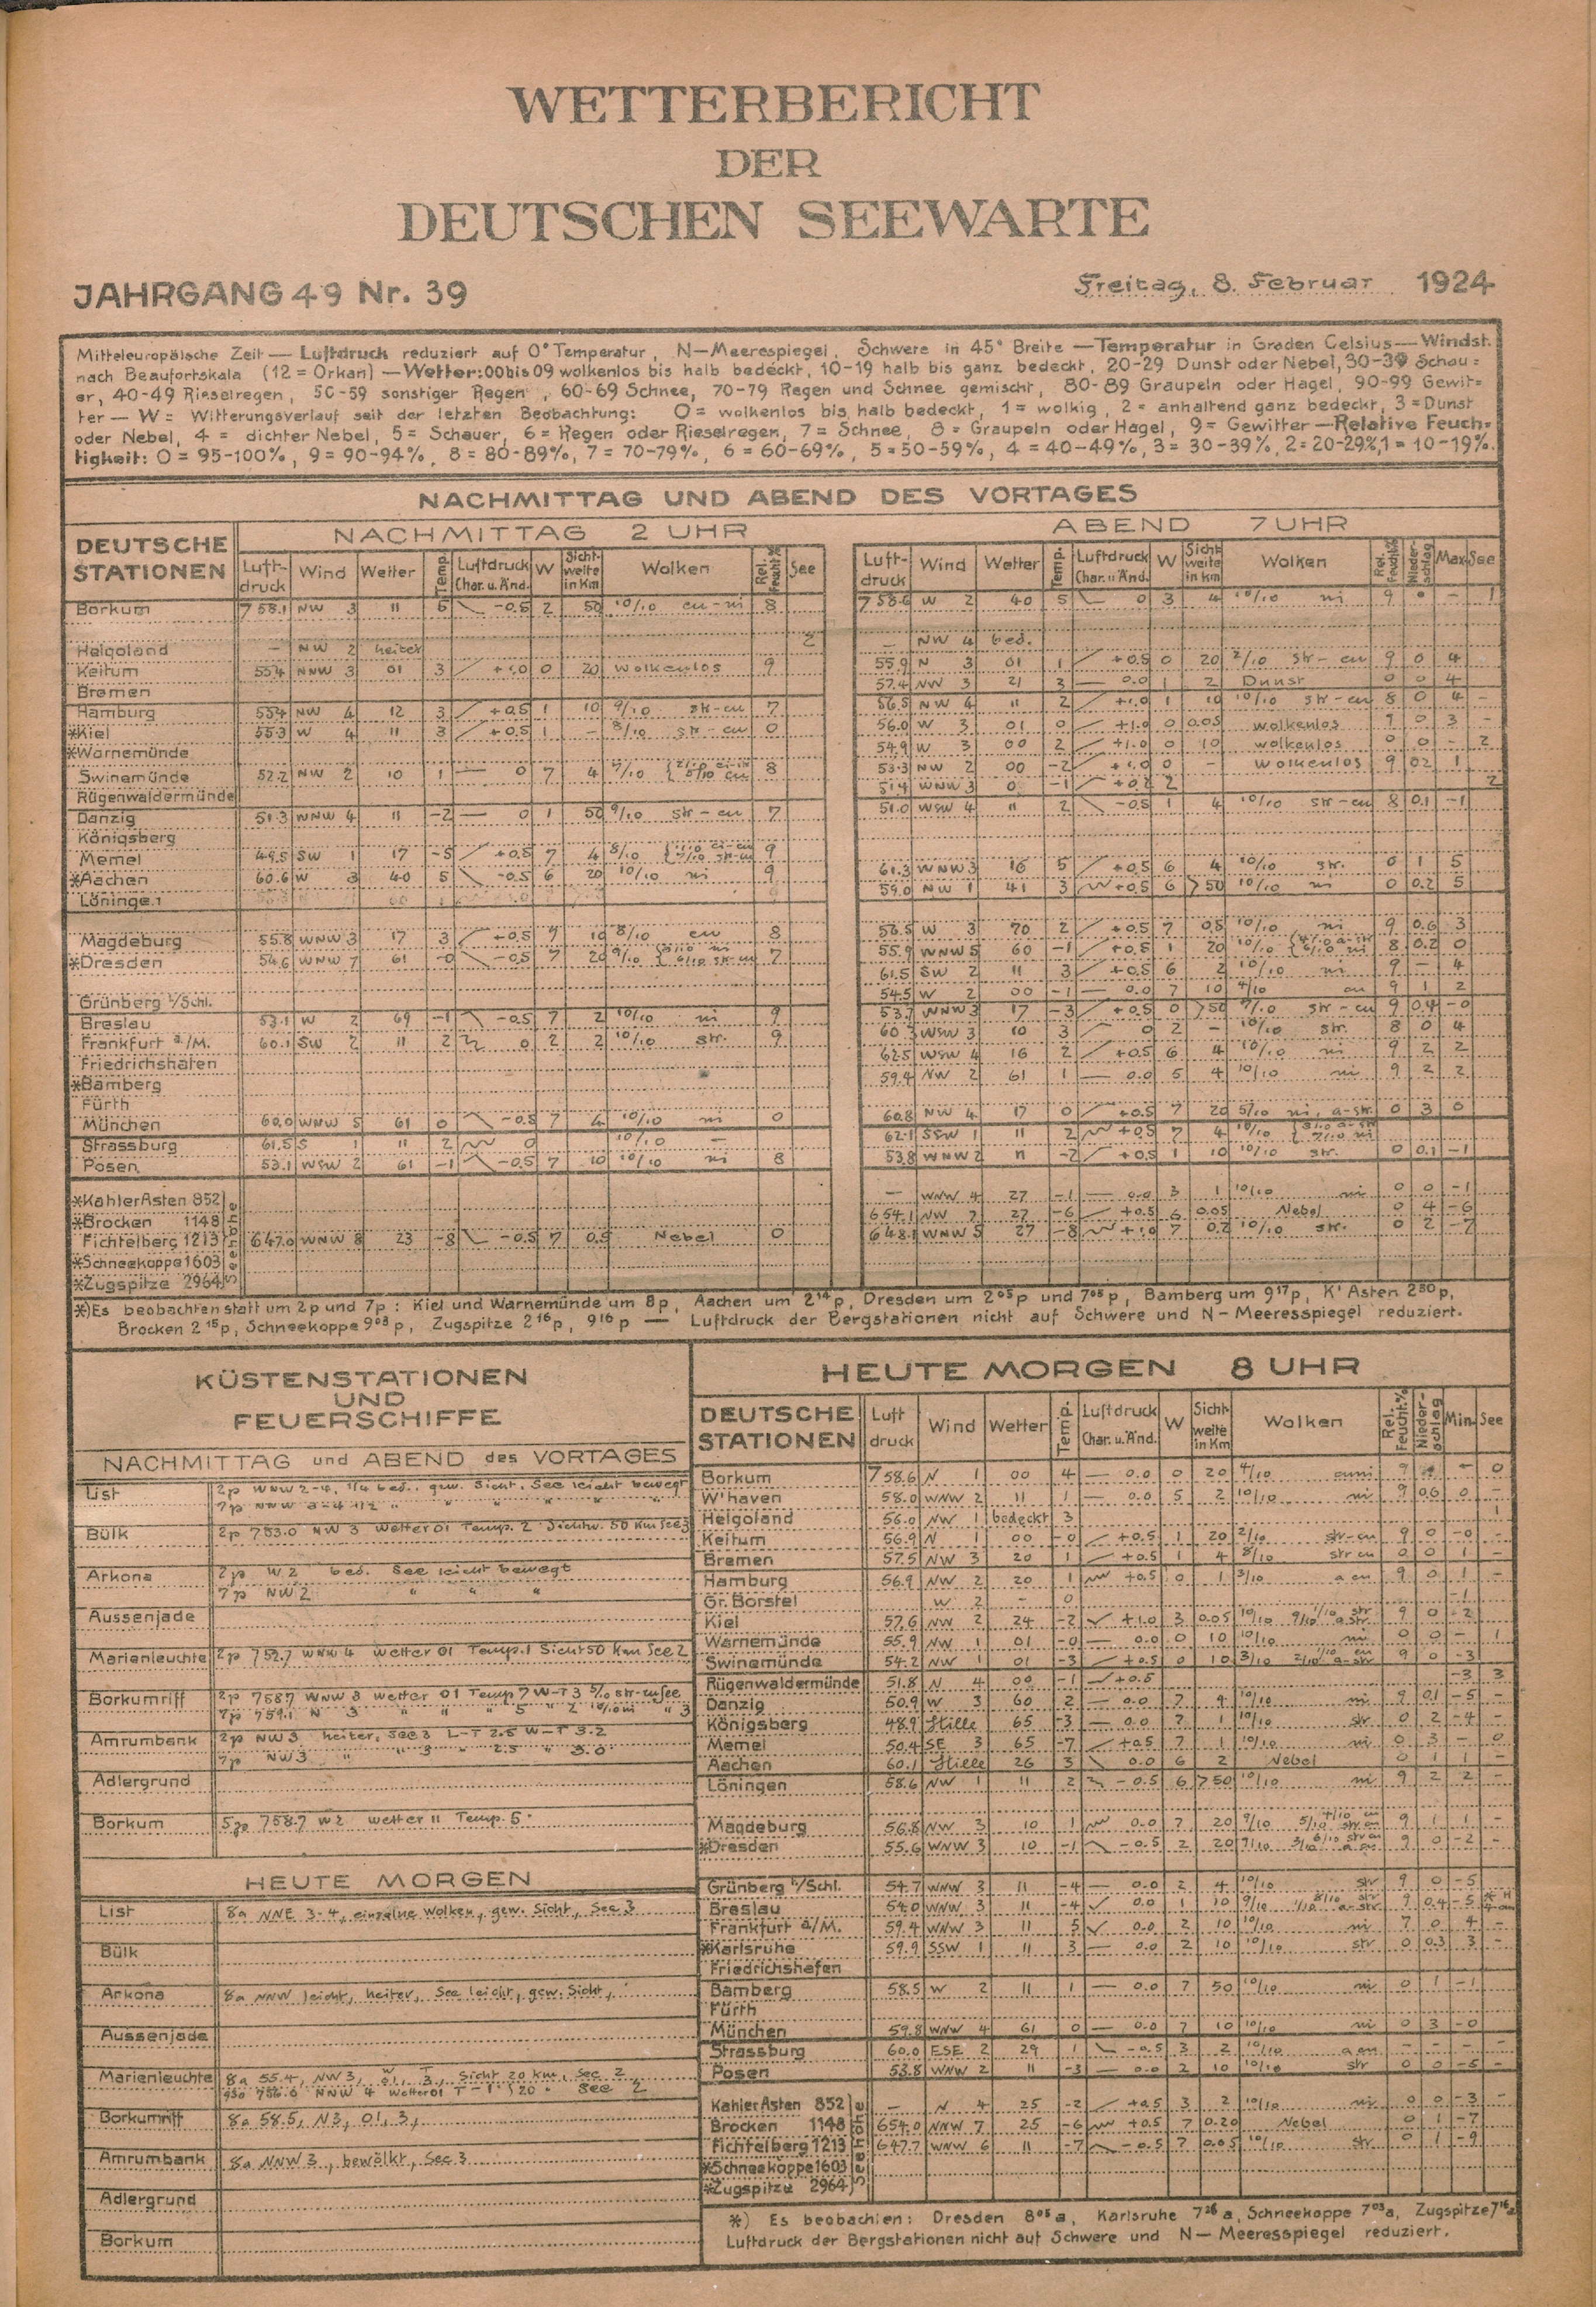 WETTERBERICHT
DER
DEUTSCHEN SEEWARTE
JAHRGANG 49 Nr. 39 Freitag, 8. Februar 1924
Mitteleuropäische Zeit — Luftdruck reduziert auf 0° Temperatur, N—Meerespiegel, Schwere in 45° Breite — Temperatur in Graden Celsius — Windst.
nach Beaufortskala (12 = Orkan) — Wetter: 00 bis 09 wolkenlos bis halb bedeckt, 10-19 halb bis ganz bedeckt, 20-29 Dunst oder Nebel, 30-39 Schau=
er, 40-49 Rieselregen, 50-59 sonstiger Regen, 60-69 Schnee, 70-79 Regen und Schnee gemischt, 80-89 Graupeln oder Hagel, 90-99 Gewit=
ter — W = Witterungsverlauf seit der letzten Beobachtung: 0 = wolkenlos bis halb bedeckt, 1 = wolkig, 2 = anhaltend ganz bedeckt, 3 = Dunst
oder Nebel, 4 = dichter Nebel, 5 = Schauer, 6 = Regen oder Rieselregen, 7 = Schnee, 8 = Graupeln oder Hagel, 9 = Gewitter — Relative Feuch=
tigkeit: 0 = 95-100%, 9 = 90-94%, 8 = 80-89%, 7 = 70-79%, 6 = 60-69%, 5 = 50-59%, 4 = 40-49%, 3 = 30-39%, 2 = 20-29%, 1 = 10-19%.
NACHMITTAG UND ABEND DES VORTAGES
NACHMITTAG 2 UHR ABEND 7 UHR
DEUTSCHE STATIONEN Luft-druck Wind Wetter Temp. Luftdruck Char. u. Änd. W Sicht-weite in Km Wolken Rel. Feucht.% See Luft-druck Wind Wetter Temp. Luftdruck Char. u. Änd. W Sicht-weite in km Wolken Rel. Feucht.% Nieder-schlag Max. See
Borkum 758.1 NW 3 11 5 -0.5 2 50 10/10 cu-ni 8 758.6 W 2 40 5 0 3 4 10/10 ni 9
Helgoland — NW 2 heiter 2 — NW 4 bed.
Keitum 55.4 NNW 3 01 3 +1.0 0 20 wolkenlos 9 55.9 N 3 01 1 +0.5 0 20 2/10 str-cu 9 0 4
Bremen 57.4 NW 3 21 3 — 0.0 1 2 Dunst 0 0 4
Hamburg 55.4 NW 4 12 3 +0.5 1 10 9/10 str-cu 7 56.5 NW 4 11 2 +1.0 1 10 10/10 str-cu 8 0 4 -
*Kiel 55.3 W 4 11 3 +0.5 1 - 8/10 str-cu 0 56.0 W 3 01 0 +1.0 0 0.05 wolkenlos 9 0 3 -
*Warnemünde 54.9 W 3 00 2 +1.0 0 10 wolkenlos 0 0 - 2
Swinemünde 52.2 NW 2 10 1 — 0 7 4 8 53.3 NW 2 00 -2 +1.0 0 - wolkenlos 9 02 1
Rügenwaldermünde 51.4 WNW 3 0 -1 +0.2 2 2
Danzig 51.3 WNW 4 11 -2 — 0 1 50 9/10 str-cu 7 51.0 WSW 4 11 2 -0.5 1 4 10/10 str-cu 8 0.1 -1
Königsberg
Memel 49.5 SW 1 17 -5 +0.5 7 4 8/10 9
*Aachen 60.6 W 3 40 5 -0.5 6 20 10/10 ni 9 61.3 WNW 3 16 5 +0.5 6 4 10/10 str. 0 1 5
Löningen 59.0 NW 1 41 3 +0.5 6 >50 10/10 ni 0 0.2 5
Magdeburg 55.8 WNW 3 17 3 +0.5 7 10 8/10 cu 8 56.5 W 3 70 2 +0.5 7 0.5 10/10 ni 9 0.6 3
*Dresden 54.6 WNW 7 61 -0 -0.5 7 20 9/10 7 55.9 WNW 5 60 -1 +0.5 1 20 10/10 8 0.2 0
61.5 SW 2 11 3 +0.5 6 2 10/10 ni 9 — 4
Grünberg i/Schl. 54.5 W 2 00 -1 — 0.0 7 10 4/10 cu 9 1 2
Breslau 53.1 W 2 69 -1 -0.5 7 2 10/10 ni 9 53.7 WNW 3 17 -3 +0.5 0 >50 7/10 str-cu 9 0.4 -0
Frankfurt a/M. 60.1 SW 2 11 2 0 2 2 10/10 str. 9 60.3 WSW 3 10 3 0 2 - 10/10 str. 8 0 4
Friedrichshafen 62.5 WSW 4 16 2 +0.5 6 4 10/10 ni 9 2 2
*Bamberg 59.4 NW 2 61 1 — 0.0 5 4 10/10 ni 9 2 2
Fürth
München 60.0 WNW 5 61 0 -0.5 7 4 10/10 ni 0 60.8 NW 4 17 0 +0.5 7 20 5/10 ni, a-str. 0 3 0
Strassburg 61.5 S 1 11 2 0 10/10 — 62.1 SSW 1 11 2 +0.5 7 4 10/10
Posen 53.1 WSW 2 61 -1 -0.5 7 10 10/10 ni 8 53.8 WNW 2 11 -2 +0.5 1 10 10/10 str. 0 0.1 -1
Seehöhe
*Kahler Asten 852 — WNW 4 27 -1 — 0.0 3 1 10/10 ni 0 0 -1
*Brocken 1148 654.1 NW 7 27 -6 +0.5 6 0.05 Nebel 0 4 -6
Fichtelberg 1213 647.0 WNW 8 23 -8 -0.5 7 0.5 Nebel 0 648.1 WNW 5 27 -8 +1.0 7 0.2 10/10 str. 0 2 -7
*Schneekoppe 1603
*Zugspitze 2964
*) Es beobachten statt um 2p und 7p: Kiel und Warnemünde um 8p, Aachen um 2¹⁴p, Dresden um 2⁰⁵p und 7⁰⁵p, Bamberg um 9¹⁷p, K' Asten 2³⁰p,
Brocken 2¹⁵p, Schneekoppe 9⁰³p, Zugspitze 2¹⁶p, 9¹⁶p — Luftdruck der Bergstationen nicht auf Schwere und N—Meeresspiegel reduziert.
KÜSTENSTATIONEN
UND
FEUERSCHIFFE
NACHMITTAG und ABEND des VORTAGES
List 2p WNW 2-4, 1/4 bed., gew. Sicht, See leicht bewegt
7p NNW 3-4 1/2 " " " " "
Bülk 2p 753.0 NW 3 Wetter 01 Temp. 2 Sichtw. 50 Km See 3
Arkona 2p W 2 bed. See leicht bewegt
7p NW 2 " " "
Aussenjade
Marienleuchte 2p 752.7 WNW 4 Wetter 01 Temp. 1 Sicht 50 Km See 2
Borkumriff 2p 758.7 WNW 3 Wetter 01 Temp 7 W-T 3 5/10 str-cu See
7p 759.1 N 3 " " " 5 " 2 10/10 ni " 3
Amrumbank 2p NW 3 heiter, See 3 L-T 2.5 W-T 3.2
7p NW 3 " " 3 " 2.5 " 3.0
Adlergrund
Borkum 5p 758.7 W 2 Wetter 11 Temp. 5
HEUTE MORGEN
List 8a NNE 3-4, einzelne Wolken, gew. Sicht, See 3
Bülk
Arkona 8a NNW leicht, heiter, See leicht, gew. Sicht,
Aussenjade
Marienleuchte 8a 55.4, NW 3, 01, 3, Sicht 20 Km, See 2
NNW 4 Wetter 01 T-1 S 20 " See 2
Borkumriff 8a 58.5, N 3, 01, 3,
Amrumbank 8a NNW 3, bewölkt, See 3
Adlergrund
Borkum
HEUTE MORGEN 8 UHR
DEUTSCHE STATIONEN Luft druck Wind Wetter Temp. Luftdruck Char. u. Änd. W Sicht-weite in Km Wolken Rel. Feucht.% Nieder-schlag Min. See
Borkum 758.6 N 1 00 4 — 0.0 0 20 4/10 cuni 9 - 0
W'haven 58.0 WNW 2 11 1 — 0.0 5 2 10/10 ni 9 0.6 0 -
Helgoland 56.0 NW 1 bedeckt 3 1
Keitum 56.9 N 1 00 -0 +0.5 1 20 2/10 str-cu 9 0 -0 -
Bremen 57.5 NW 3 20 1 +0.5 1 4 8/10 str cu 0 0 1 -
Hamburg 56.9 NW 2 20 1 +0.5 0 1 3/10 a cu 9 0 1 -
Gr. Borstel W 2 - 0 -1
Kiel 57.6 NW 2 24 -2 +1.0 3 0.05 10/10 9/10 1/10 str a str 9 0 -2
Warnemünde 55.9 NW 1 01 -0 — 0.0 0 10 10/10 ni 0 0 - 1
Swinemünde 54.2 NW 1 01 -3 +0.5 0 10 3/10 2/10 1/10 cu a-str 9 0 -3
Rügenwaldermünde 51.8 N 4 00 -1 +0.5 -3 3
Danzig 50.9 W 3 60 2 — 0.0 7 4 10/10 ni 9 0.1 -5 -
Königsberg 48.9 Stille 65 -3 — 0.0 7 1 10/10 str 0 2 -4 -
Memel 50.4 SE 3 65 -7 +0.5 7 1 10/10 ni 0 3 - 0
Aachen 60.1 Stille 26 3 0.0 6 2 Nebel 0 1 1 -
Löningen 58.6 NW 1 11 2 -0.5 6 >50 10/10 ni 9 2 2 -
Magdeburg 56.8 NW 3 10 1 0.0 7 20 9/10 5/10 4/10 cu str cu 9 1 1 -
*Dresden 55.6 WNW 3 10 -1 -0.5 2 20 9/10 3/10 6/10 str cu a cu 9 0 -2 -
Grünberg i/Schl. 54.7 WNW 3 11 -4 — 0.0 2 4 10/10 str 9 0 -5
Breslau 54.0 WNW 3 11 -4 0.0 1 10 9/10 1/10 8/10 str a-str 9 0.4 -5
Frankfurt a/M. 59.4 WNW 3 11 5 0.0 2 10 10/10 ni 7 0 4 -
*Karlsruhe 59.9 SSW 1 11 3 — 0.0 2 10 10/10 str 0 0.3 3 -
Friedrichshafen
Bamberg 58.5 W 2 11 1 — 0.0 7 50 10/10 ni 0 1 -1
Fürth
München 59.8 WNW 4 61 0 — 0.0 7 10 10/10 ni 0 3 -0
Strassburg 60.0 ESE 2 29 1 -0.5 3 2 10/10 a cu - - - -
Posen 53.8 WNW 2 11 -3 — 0.0 2 10 10/10 str 0 0 -5 -
Seehöhe
Kahler Asten 852 — N 4 25 -2 +0.5 3 2 10/10 ni 0 0 -3 -
Brocken 1148 654.0 NNW 7 25 -6 +0.5 7 0.20 Nebel 0 1 -7
Fichtelberg 1213 647.7 WNW 6 11 -7 -0.5 7 0.05 10/10 str 0 1 -9
*Schneekoppe 1603
*Zugspitze 2964
*) Es beobachten: Dresden 8⁰⁵a, Karlsruhe 7²⁶a, Schneekoppe 7⁰³a, Zugspitze 7¹⁶a
Luftdruck der Bergstationen nicht auf Schwere und N—Meeresspiegel reduziert.